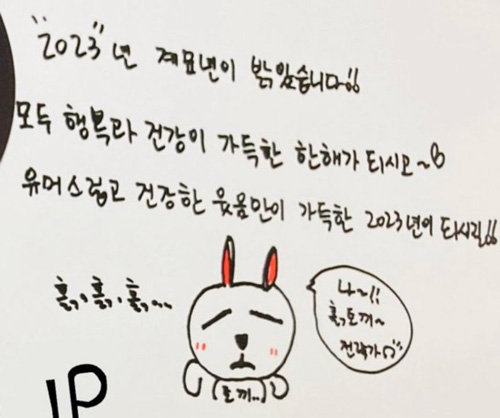 "2023"년 계묘년이 밝았습니다!!
모두 행복과 건강이 가득한 한해가 되시고~
유머스럽고 건강한 웃음만이 가득한 2023년이 되시길!!
흙, 흙, 흙,...
나~!!
흙토끼~
전략가
(토끼..)
JP